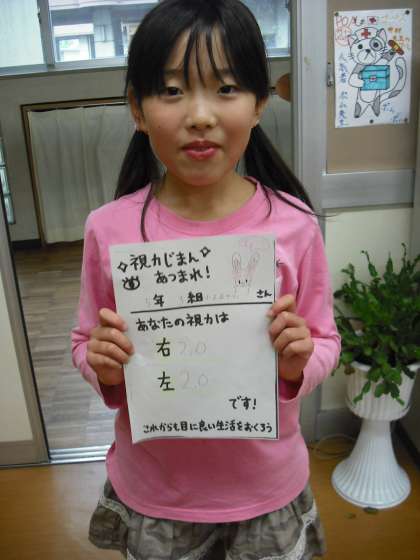 視力じまん
あつまれ!
5年 組 さん
あなたの視力は
右 2.0
左 2.0
です!
これからも目に良い生活をおくろう